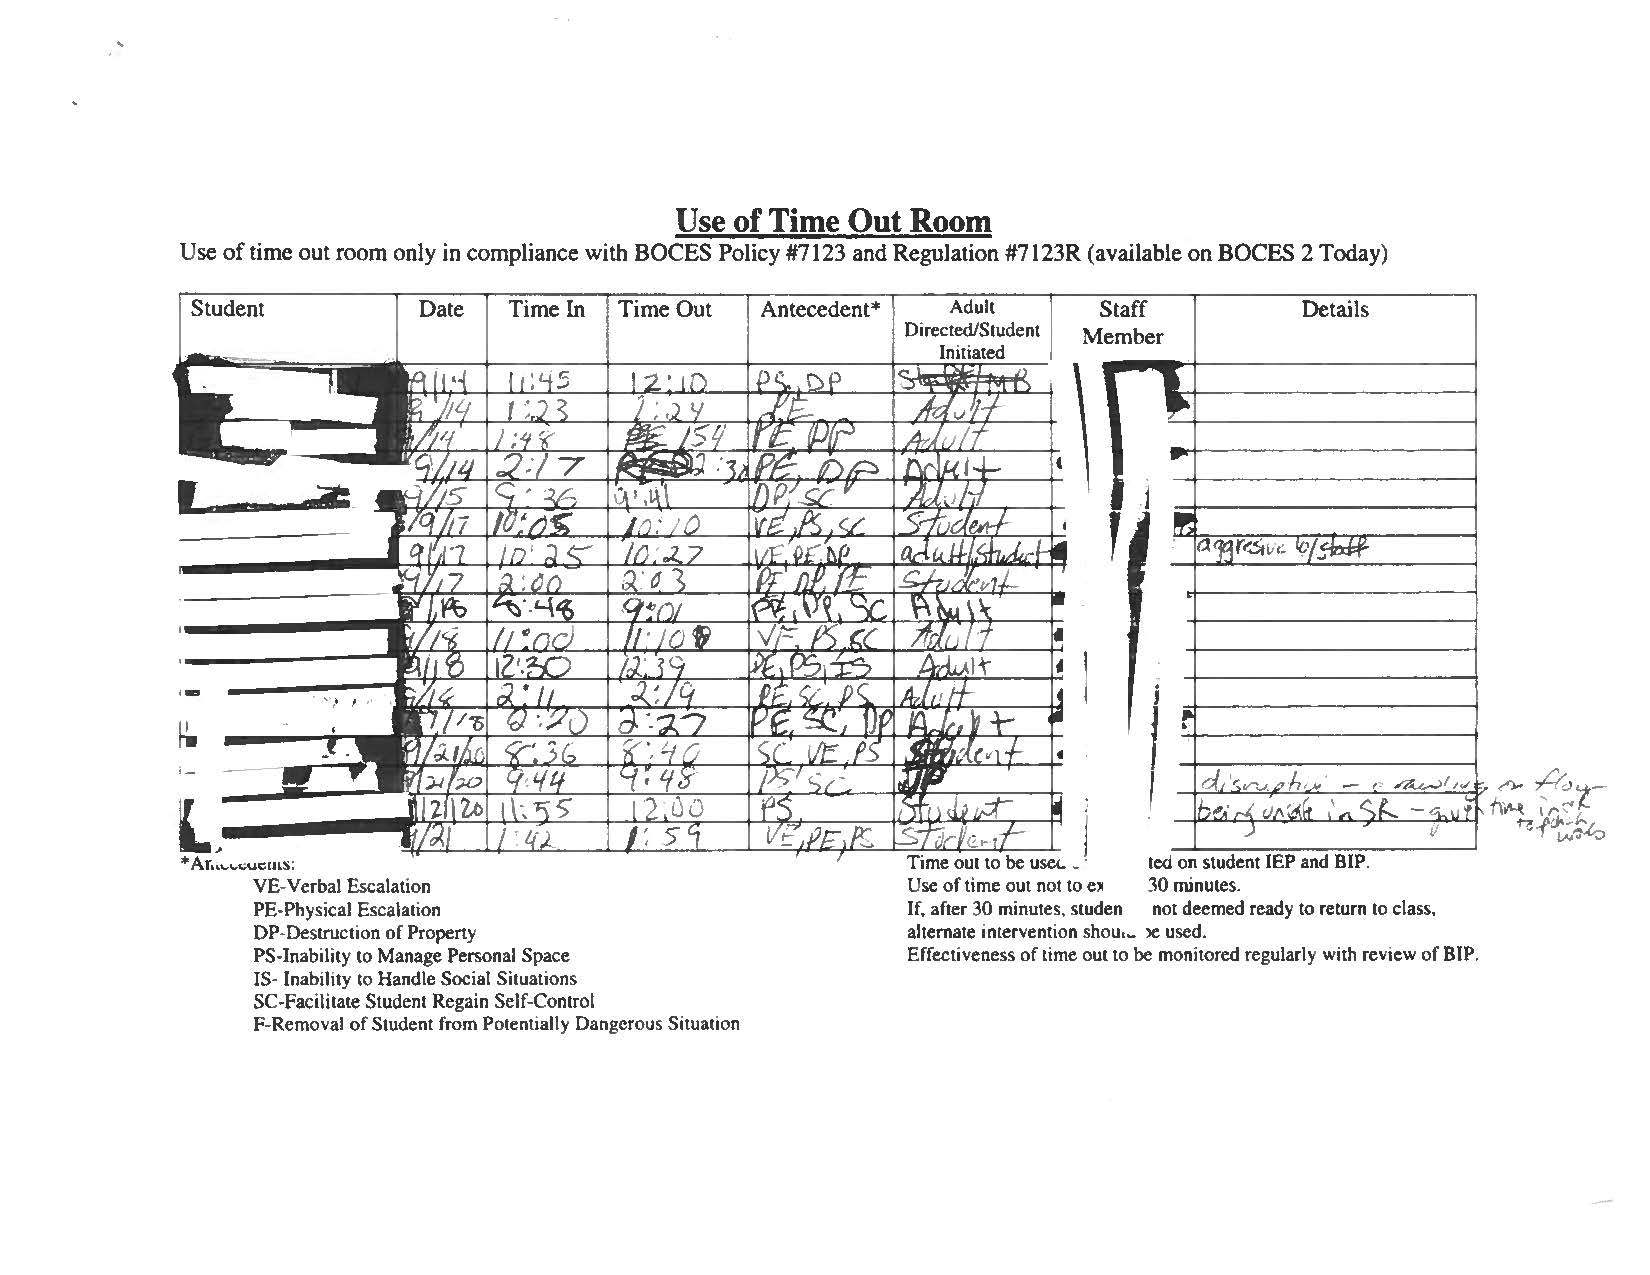 Use of Time Out Room
Use of time out room only in compliance with BOCES Policy #7123 and Regulation #7123R (available on BOCES 2 Today)
Student Date Time In Time Out Antecedent* Adult Directed/Student Initiated Staff Member Details
9/14 11:45 12:10 PS, DP
9/14 1:23 1:24 PE Adult
9/14 1:48 154 PE, DP Adult
9/14 2:17 2:30 PE, DP Adult
9/15 9:36 9:41 DP, SC Adult
9/17 10:05 10:10 VE, PS, SC Student
9/17 10:25 10:27 VE, PE, DP adult/student aggresive to/staff
9/17 2:00 2:03 PE, DP, Student
8:48 9:01 PE, DP, SC Adult
9/18 11:00 11:10 VE, PS, SC Adult
9/18 12:30 12:39 PE, PS, IS Adult
9/18 2:11 2:19 PE, SC, PS Adult
9/18 2:20 2:27 PE, SC, DP Adult
9/21/20 8:36 8:46 SC, VE, PS Student
9/21/20 9:44 9:48 PS, SC - crawling on floor
9/21/20 11:55 12:00 PS Student being unsafe in SR - quiet time in SR
9/21 1:42 1:59 VE, PE, PS Student
VE-Verbal Escalation
PE-Physical Escalation
DP-Destruction of Property
PS-Inability to Manage Personal Space
IS- Inability to Handle Social Situations
SC-Facilitate Student Regain Self-Control
F-Removal of Student from Potentially Dangerous Situation
Time out to be used on student IEP and BIP.
Use of time out not to 30 minutes.
If, after 30 minutes, not deemed ready to return to class,
alternate intervention used.
Effectiveness of time out to be monitored regularly with review of BIP.